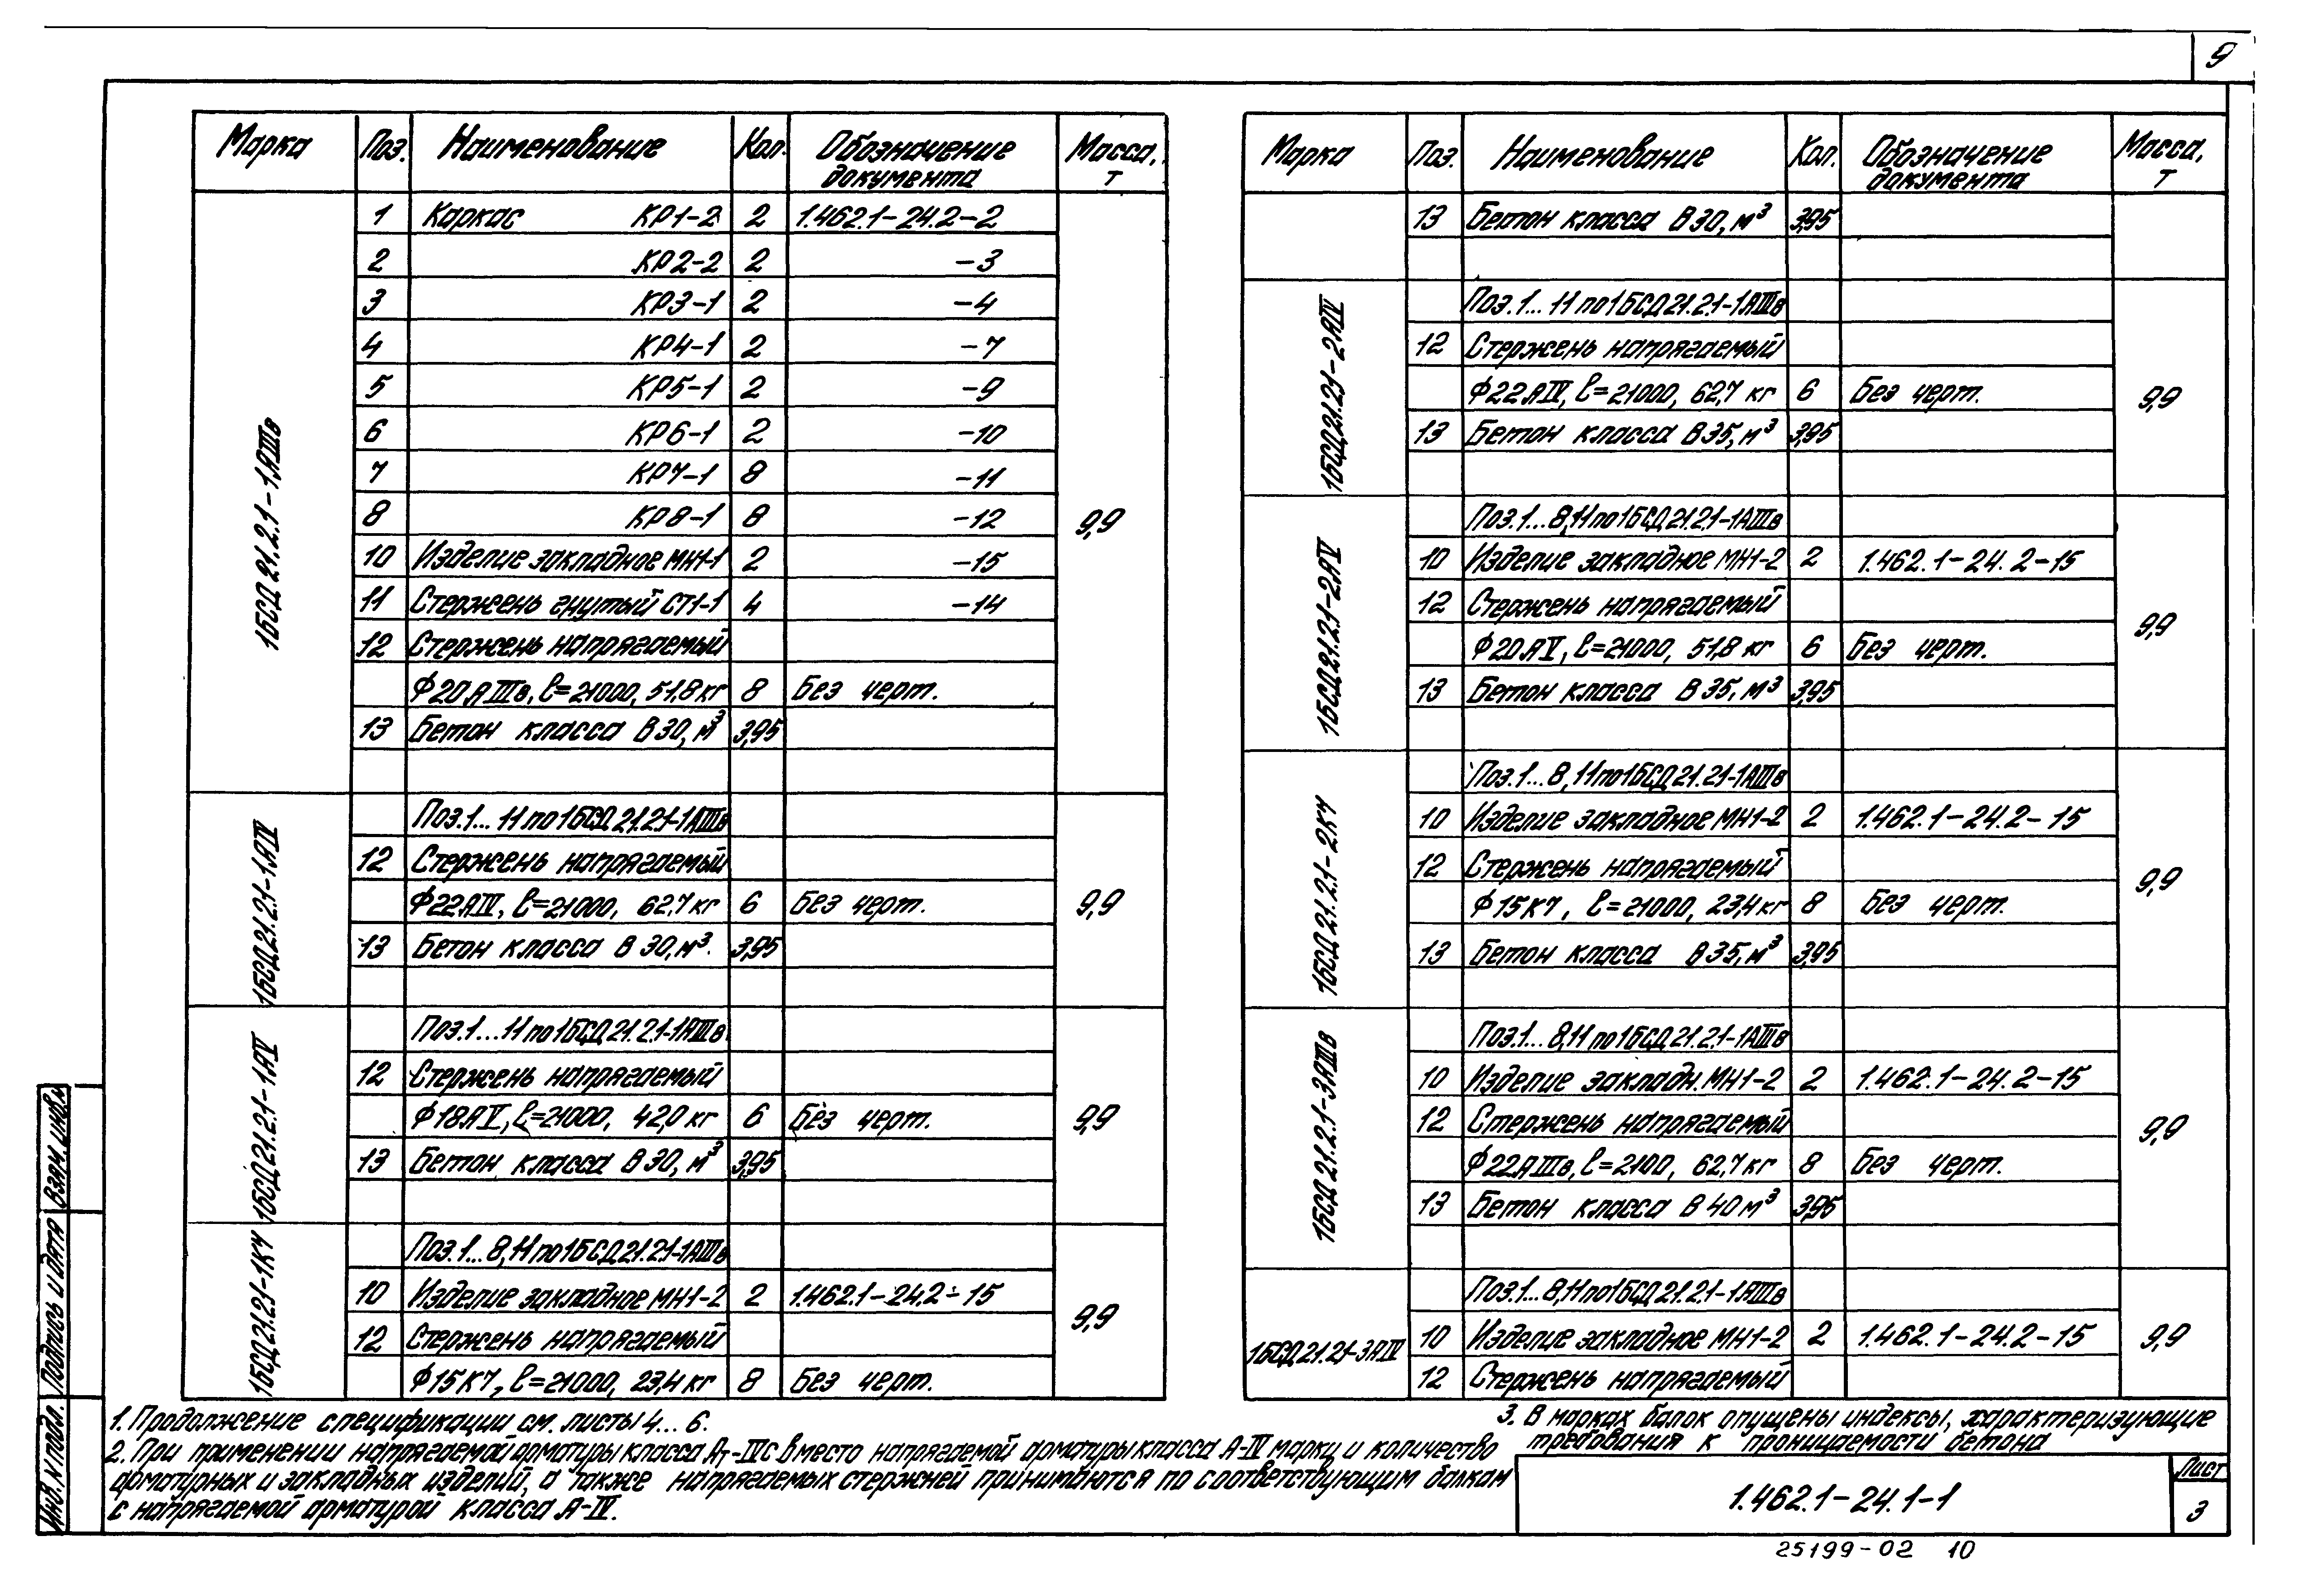 9
Марка Поз. Наименование Кол. Обозначение документа Масса, т
1БСД 21.2.1-1АIIIв
1 Каркас КР1-2 2 1.462.1-24.2-2
2 КР2-2 2 -3
3 КР3-1 2 -4
4 КР4-1 2 -7
5 КР5-1 2 -9
6 КР6-1 2 -10
7 КР7-1 8 -11
8 КР8-1 8 -12
9,9
10 Изделие закладное МН1-1 2 -15
11 Стержень гнутый СТ1-1 4 -14
12 Стержень напрягаемый
Ф20АIIIв, l=21000, 51,8 кг 8 Без черт.
13 Бетон класса В30, м³ 3,95
1БСД21.2.1-1АIV
Поз.1...11 по 1БСД 21.2.1-1АIIIв
12 Стержень напрягаемый
Ф22АIV, l=21000, 62,7 кг 6 Без черт. 9,9
13 Бетон класса В 30, м³. 3,95
1БСД21.2.1-1АV
Поз.1...11 по 1БСД 21.2.1-1АIIIв
12 Стержень напрягаемый
Ф18АV, l=21000, 42,0 кг 6 Без черт. 9,9
13 Бетон класса В 30, м³ 3,95
1БСД21.2.1-1К7
Поз.1...8,11 по 1БСД 21.2.1-1АIIIв
10 Изделие закладное МН1-2 2 1.462.1-24.2-15
12 Стержень напрягаемый 9,9
Ф15К7, l=21000, 23,4 кг 8 Без черт.
Марка Поз. Наименование Кол. Обозначение документа Масса, т
13 Бетон класса В 30, м³ 3,95
1БСД21.2.1-2АIV
Поз.1...11 по 1БСД 21.2.1-1АIIIв
12 Стержень напрягаемый
Ф22АIV, l=21000, 62,7 кг 6 Без черт. 9,9
13 Бетон класса В35, м³ 3,95
1БСД21.2.1-2АV
Поз.1...8,11 по 1БСД 21.2.1-1АIIIв
10 Изделие закладное МН1-2 2 1.462.1-24.2-15
12 Стержень напрягаемый 9,9
Ф20АV, l=21000, 51,8 кг 6 Без черт.
13 Бетон класса В 35, м³ 3,95
1БСД 21.2.1-2К7
Поз.1...8,11 по 1БСД 21.2.1-1АIIIв
10 Изделие закладное МН1-2 2 1.462.1-24.2-15
12 Стержень напрягаемый 9,9
Ф15К7, l=21000, 23,4 кг 8 Без черт.
13 Бетон класса В35, м³ 3,95
1БСД 21.2.1-3АIIIв
Поз.1...8,11 по 1БСД 21.2.1-1АIIIв
10 Изделие закладн. МН1-2 2 1.462.1-24.2-15
12 Стержень напрягаемый 9,9
Ф22АIIIв, l=2100, 62,7 кг 8 Без черт.
13 Бетон класса В 40 м³ 3,95
1БСД 21.2.1-3АIV
Поз.1...8,11 по 1БСД 21.2.1-1АIIIв
10 Изделие закладное МН1-2 2 1.462.1-24.2-15 9,9
12 Стержень напрягаемый
1. Продолжение спецификации см. листы 4...6.
2. При применении напрягаемой арматуры класса Ат-IVС вместо напрягаемой арматуры класса А-IV марку и количество
арматурных и закладных изделий, а также напрягаемых стержней принимаются по соответствующим балкам
с напрягаемой арматурой класса А-IV.
3. В марках балок опущены индексы, характеризующие
требования к проницаемости бетона
1.462.1-24.1-1
Лист
3
Инв. N подл. Подпись и дата Взам. инв. N
25199-02 10